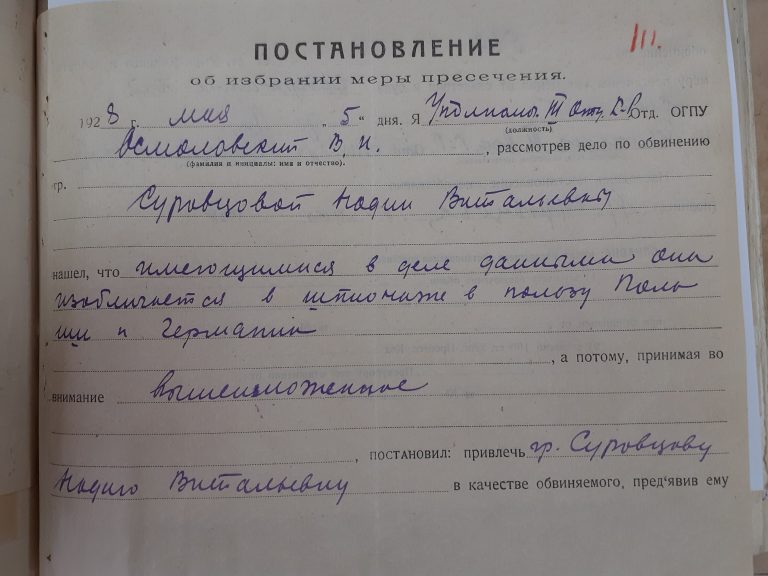 III.
ПОСТАНОВЛЕНИЕ
об избрании меры пресечения.
1928 г. мая „5“ дня. Я Уполномоч. III Отд. К-Р Отд. ОГПУ
(должность)
Осмоловский В. И. , рассмотрев дело по обвинению
(фамилия и инициалы: имя и отчество).
гр.
Суровцовой Надии Витальевны
нашел, что имеющимися в деле данными она
изобличается в шпионаже в пользу Поль
ши и Германии
, а потому, принимая во
внимание вышеизложенное
, постановил: привлечь гр. Суровцову
Надию Витальевну в качестве обвиняемого, пред‘явив ему